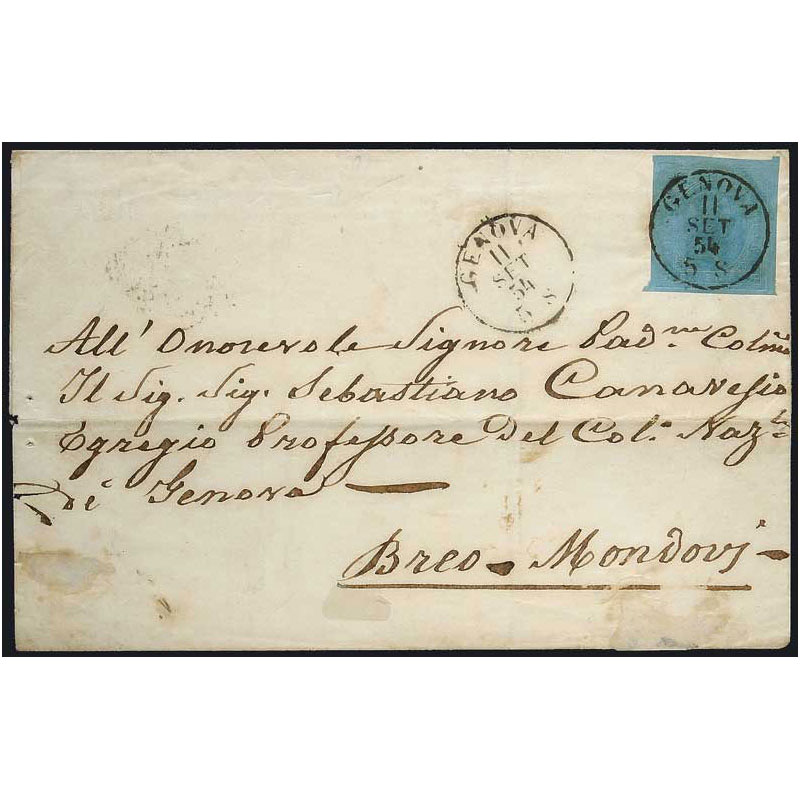 GENOVA
11
SET
54
5 S
GENOVA
11
SET
54
5 S
All' Onorevole Signore Pad.ne Colmo
Il Sig. Sig. Sebastiano Canavesio
Egregio Professore del Col.o Naz.le
di Genova —
Breo - Mondovj -